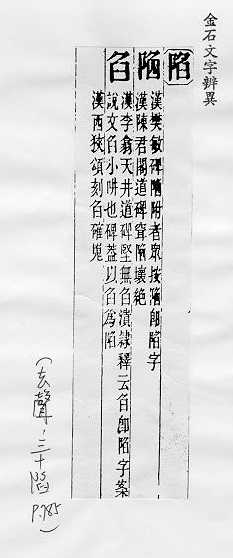 金石文字辨異
陷
䧟 漢樊敏碑䧟附者眾按䧟即陷字
漢陳君閣道碑䧟壞絕
臽 漢李翕天井道碑堅無臽潰隸釋云臽即陷字案
說文臽小阱也碑蓋以臽為陷
漢西狹頌刻臽確嵬
(去聲·三十陷 P.785)